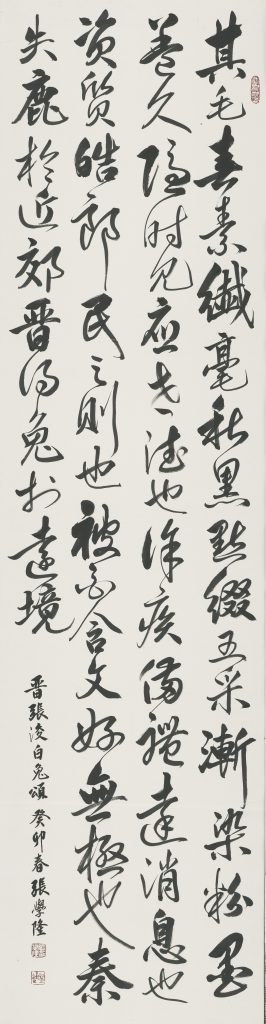 其毛春素纖毫秋黑點綴五采漸染粉墨
善久隱时见应老德也除疾備禮達消息也
資質皓郎民之則也被白含文好無極也秦
失鹿於近郊晉得兔於遠境
晉張浚白兔頌 癸卯春張學隆